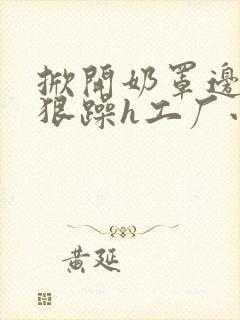 掀開奶罩邊
狠躁h工厂
黄延